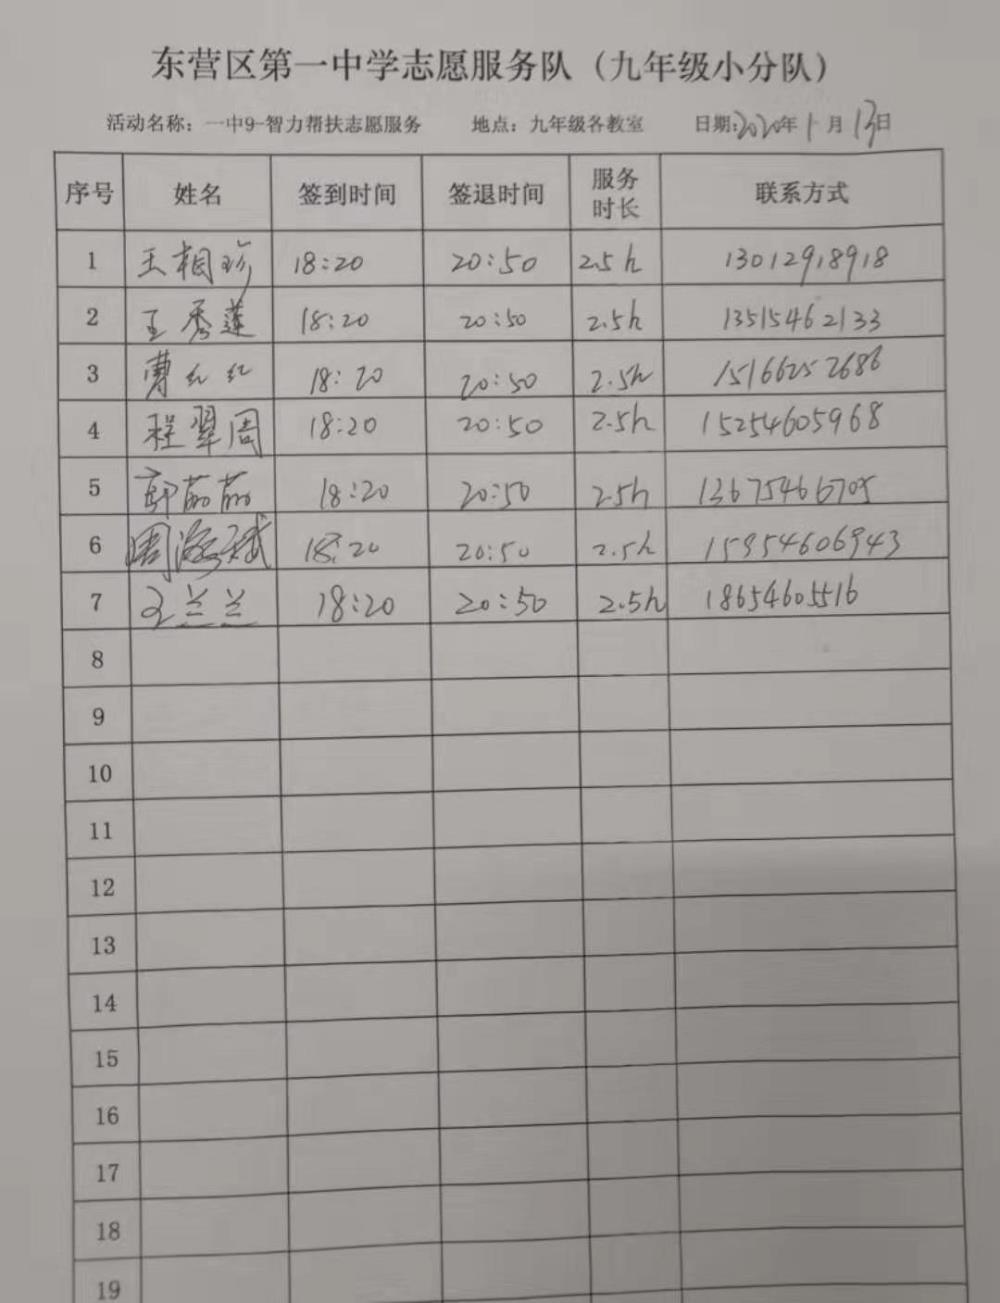 东营区第一中学志愿服务队（九年级小分队）
活动名称：一中9-智力帮扶志愿服务 地点：九年级各教室 日期:2020年1月13日
序号 姓名 签到时间 签退时间 服务时长 联系方式
1 王相珍 18:20 20:50 2.5h 13012918918
2 王秀莲 18:20 20:50 2.5h 13515462133
3 曹红红 18:20 20:50 2.5h 15166252686
4 程翠周 18:20 20:50 2.5h 15254605968
5 郭茹茹 18:20 20:50 2.5h 13675466705
6 周海斌 18:20 20:50 2.5h 15954606943
7 王兰兰 18:20 20:50 2.5h 18654605516
8
9
10
11
12
13
14
15
16
17
18
19